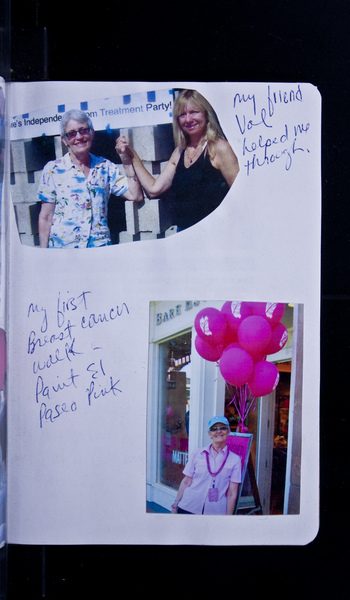 my friend
Val
helped me
through.
's Independe om Treatment Party!
my first
Breast cancer
walk –
Paint El
Paseo Pink
BARE
MATTE